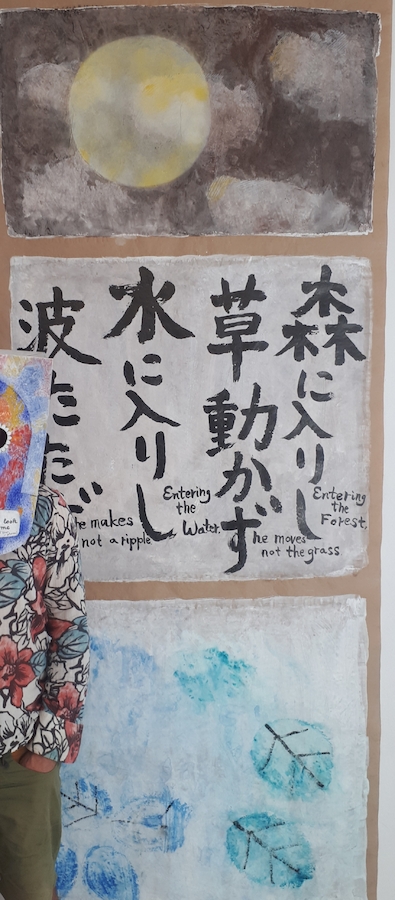 森に入りし
草動かず
水に入りし
波たたず
Entering
the
Forest,
he moves
not the grass
Entering
the
Water,
he makes
not a ripple
look
me